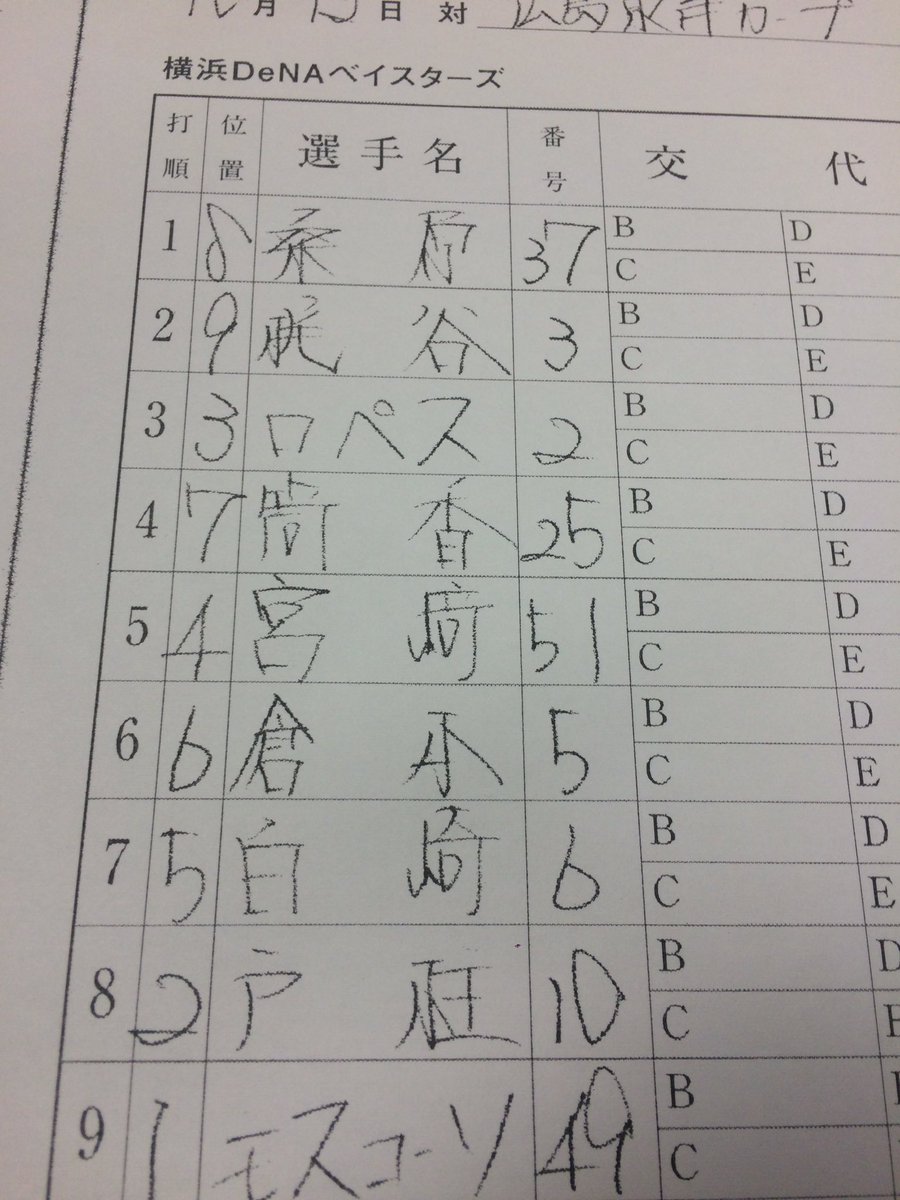 10月13日 対 広島東洋カープ
横浜DeNAベイスターズ
打順 位置 選手名 番号 交代
1 8 桑原 37 B D
C E
2 9 梶谷 3 B D
C E
3 3 ロペス 2 B D
C E
4 7 筒香 25 B D
C E
5 4 宮﨑 51 B D
C E
6 6 倉本 5 B D
C E
7 5 白崎 6 B D
C E
8 2 戸柱 10 B D
C E
9 1 モスコーソ 49 B
C